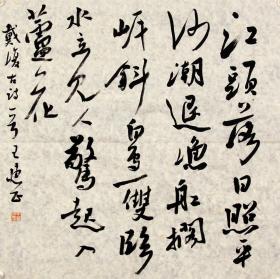 江頭落日照平
沙潮退漁舡擱
岸斜白鳥一雙臨
水立見人驚起入
蘆花
戴復古詩一首 王